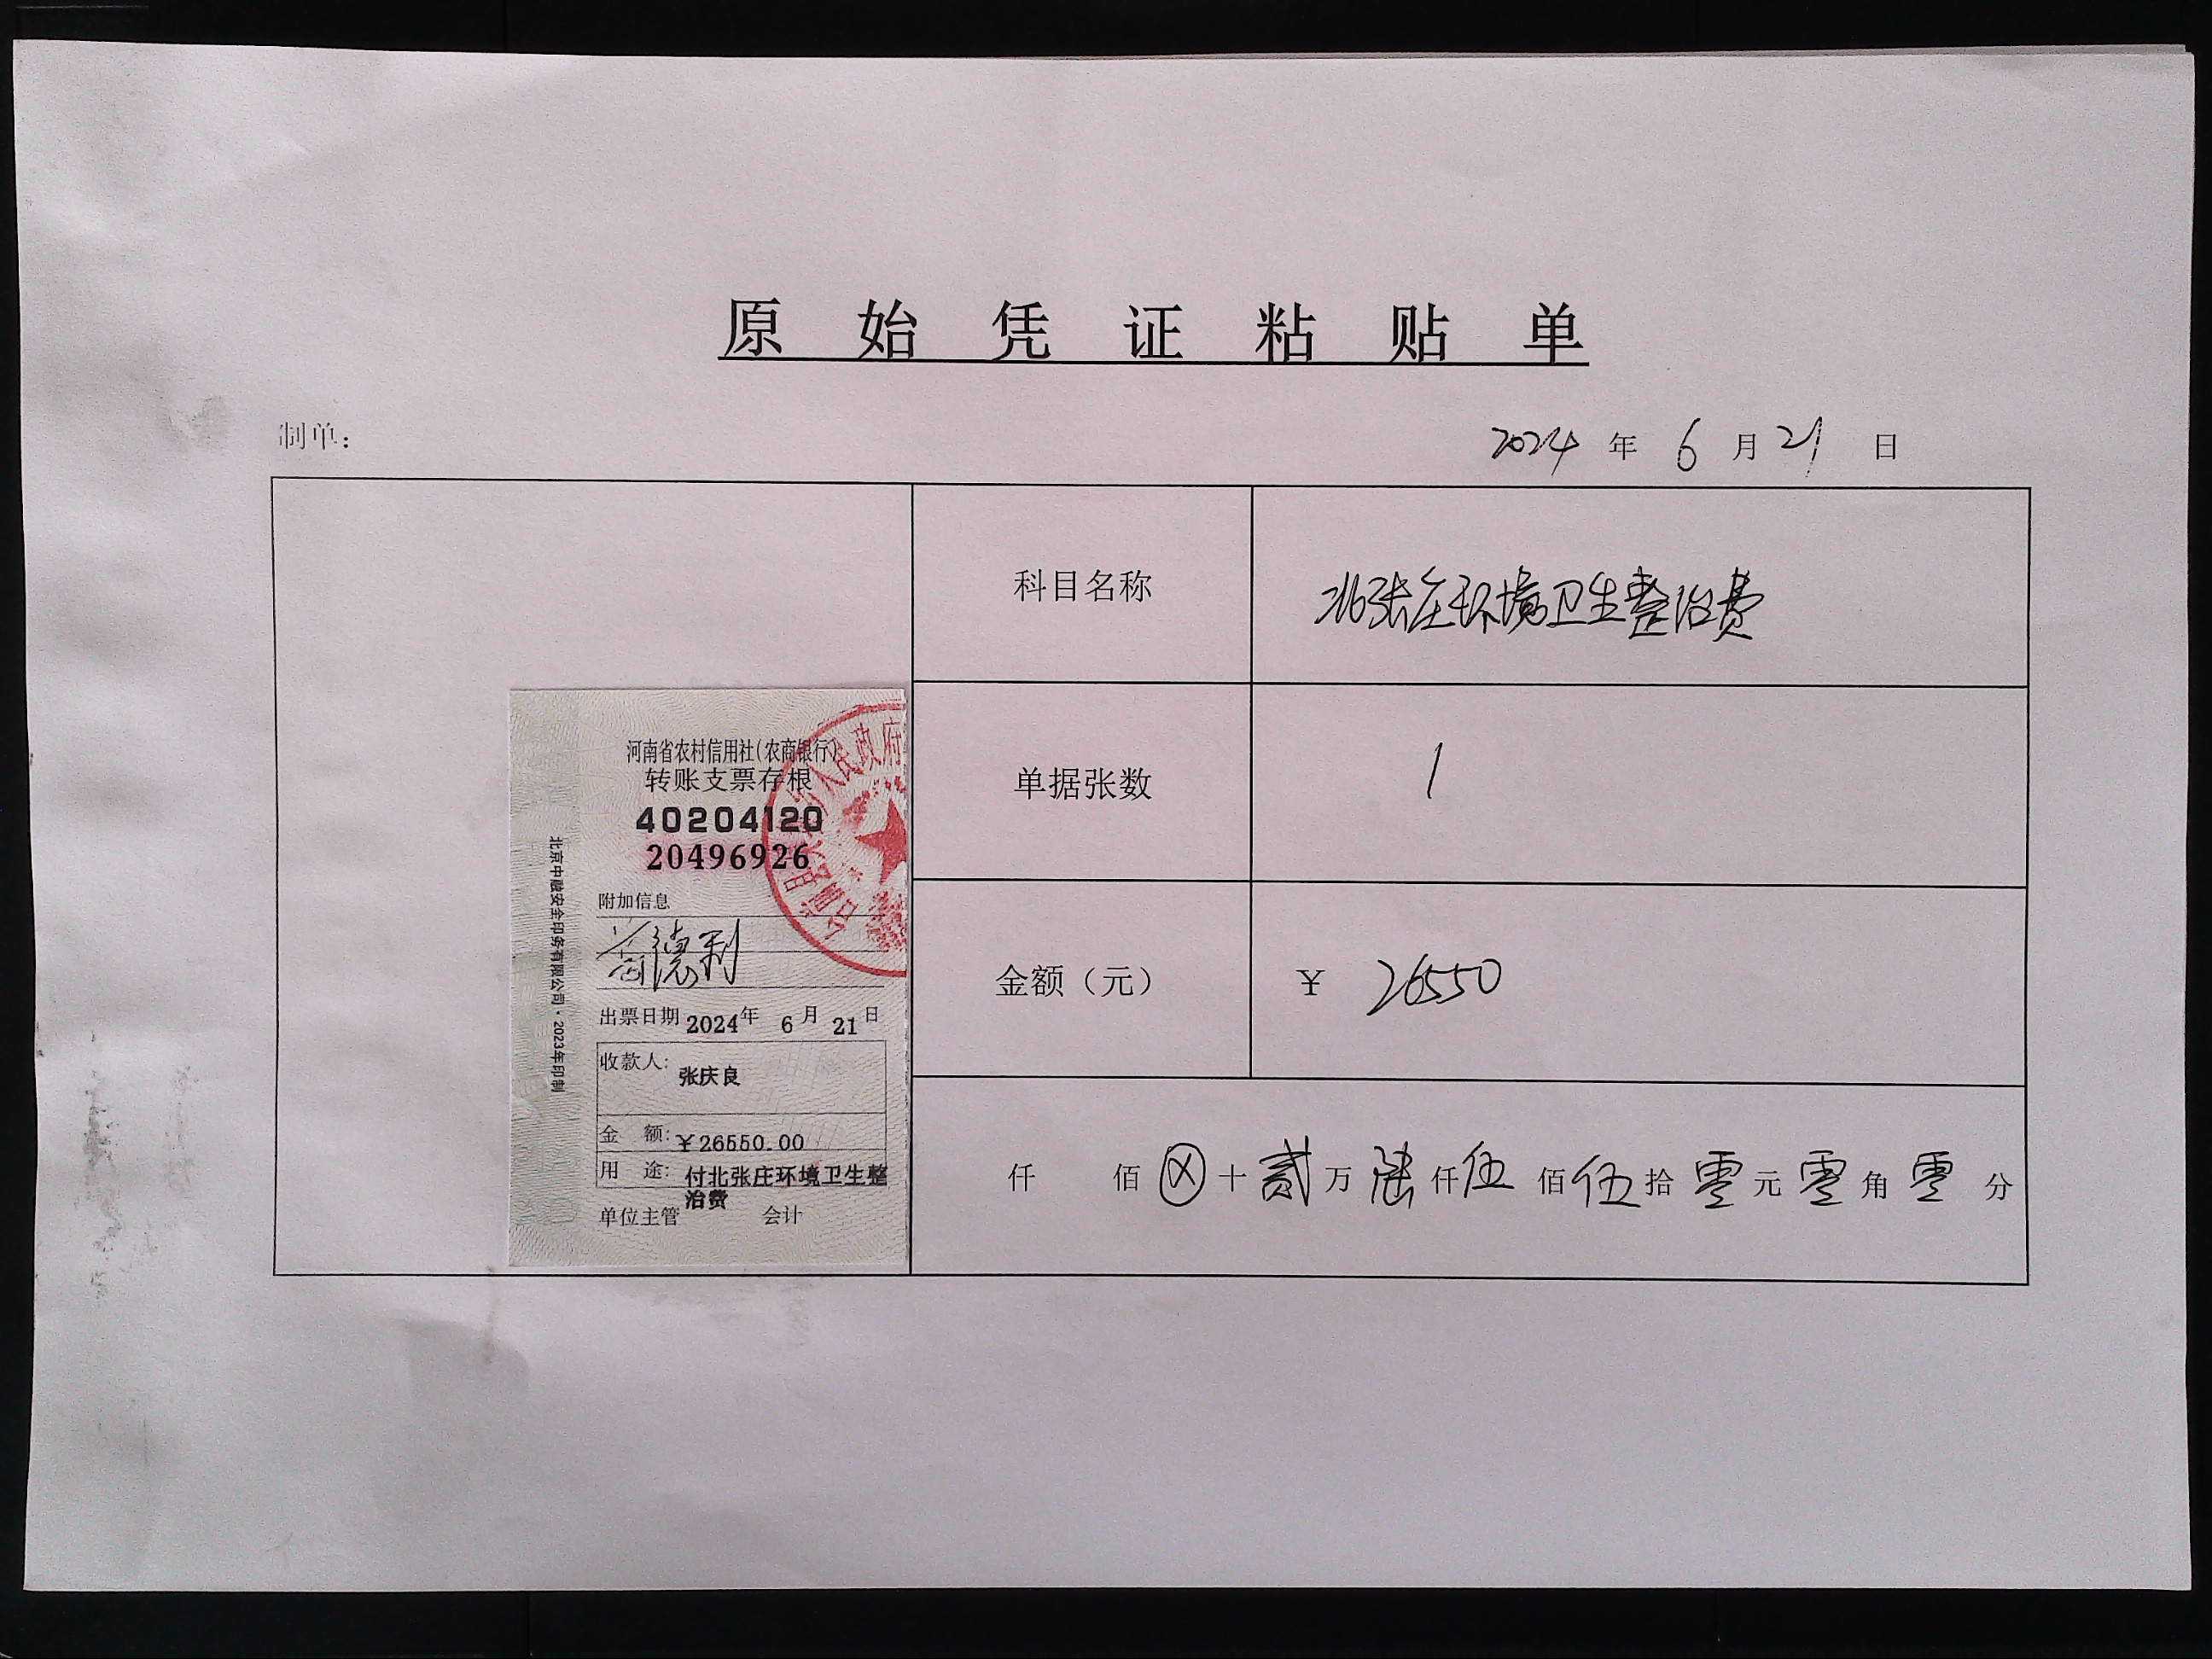 原始凭证粘贴单
制单：
2024年6月21日
科目名称
北张庄环境卫生整治费
单据张数
1
金额（元）
¥ 26550
仟 佰 ⊗ 十 贰 万 陆 仟 伍 佰 伍 拾 零 元 零 角 零 分
河南省农村信用社(农商银行)
转账支票存根
40204120
20496926
附加信息
德利
出票日期 2024年 6月 21日
收款人: 张庆良
金 额: ¥26550.00
用 途: 付北张庄环境卫生整
治费
单位主管 会计
北京中融安全印务有限公司·2023年印制
人民政府